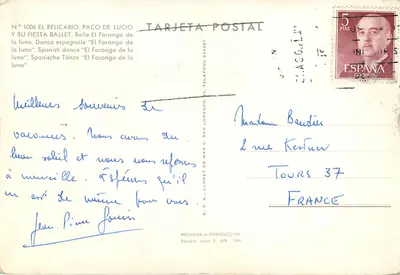 N.º 1006 EL RELICARIO. PACO DE LUCIO
Y SU FIESTA BALLET. Baile El Farongo de
la luna. Dance espagnole "El Farongo de la
luna". Spanish dance "El Farongo de la
luna". Spanische Tänze "El Farongo de la
luna"
TARJETA POSTAL
5
PTAS
ESPAÑA
CORREOS
Meilleurs souvenirs de
vacances. Nous avons du
beau soleil et nous nous reposons
à merveille. Espérons qu'il
en est de même pour vous.
Jean-Pierre
Madame Baudin
2 rue
TOURS 37
FRANCE
PROHIBIDA LA REPRODUCCION